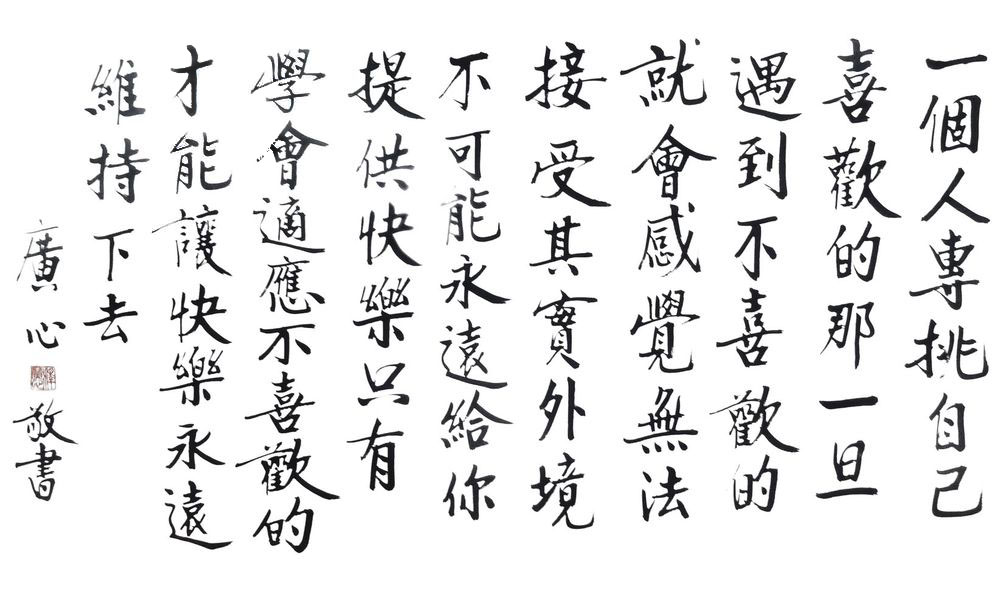 一個人專挑自己
喜歡的那一旦
遇到不喜歡的
就會感覺無法
接受其實外境
不可能永遠給你
提供快樂只有
學會適應不喜歡的
才能讓快樂永遠
維持下去
廣心敬書